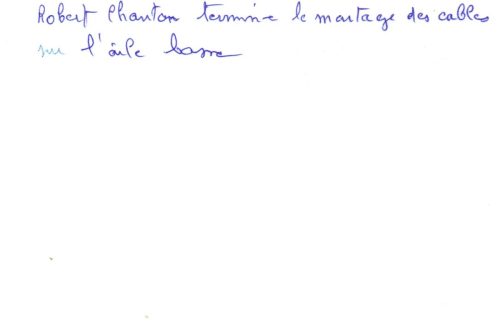 Robert Chanton termine le montage des cables
sur l'aile basse